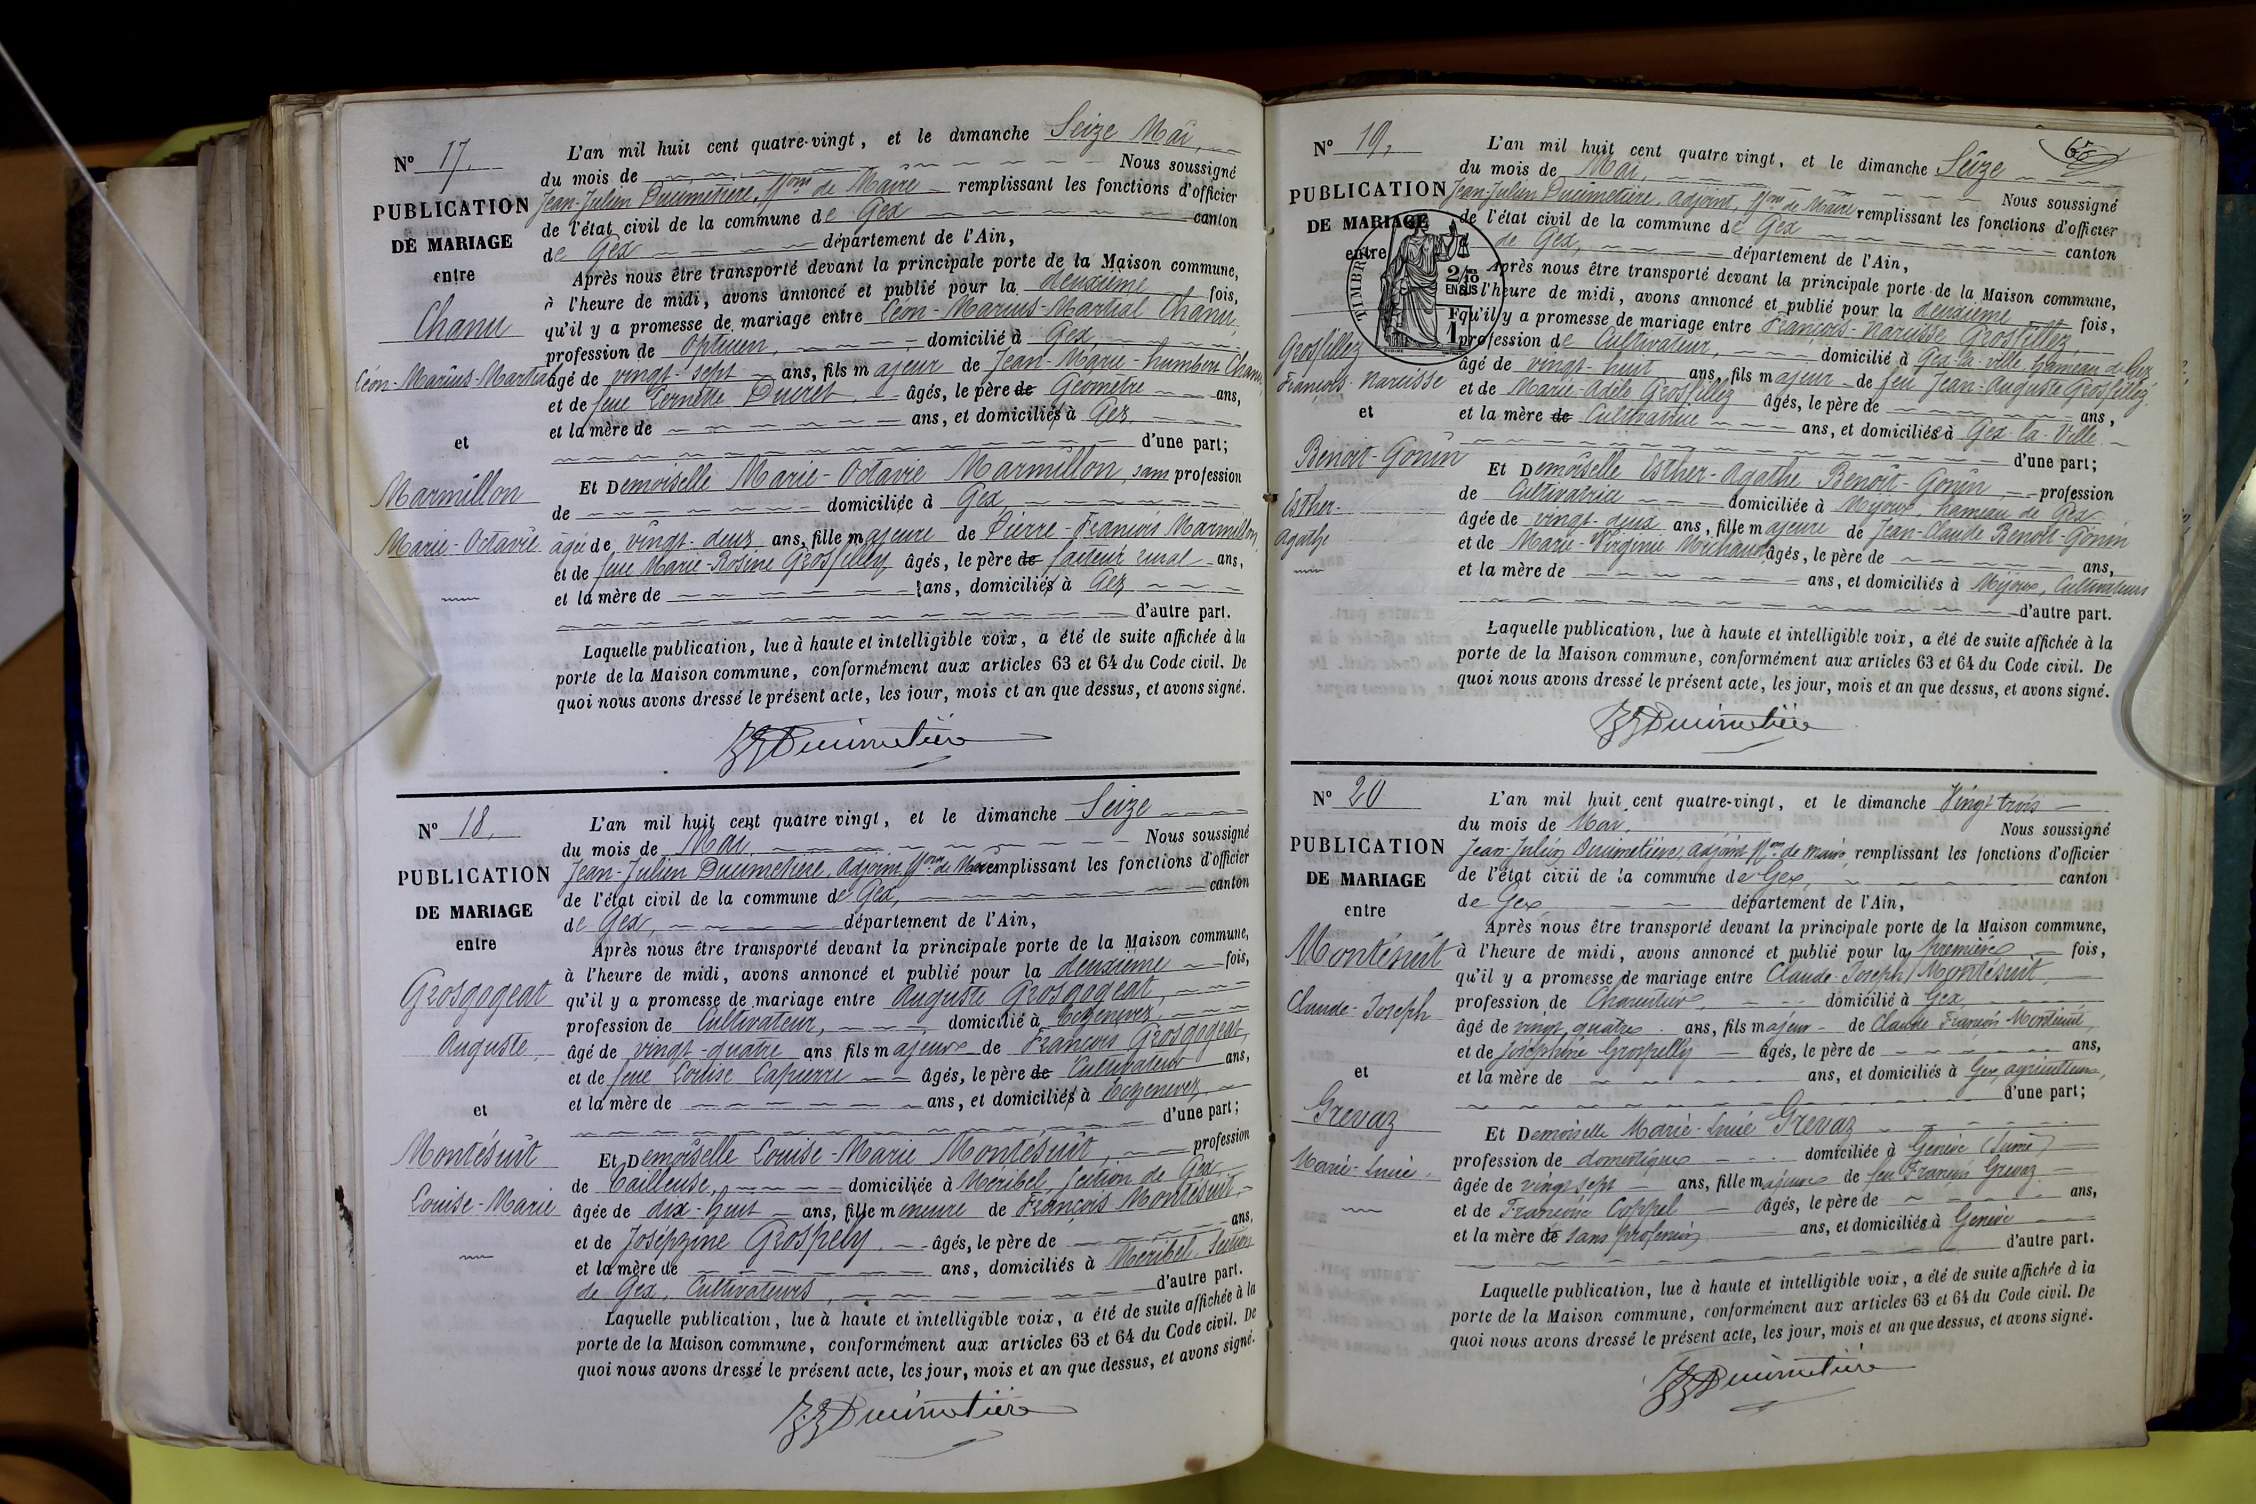 N° 17.
PUBLICATION
DE MARIAGE
entre
Chanu
Léon-Marius-Martial
et
Marmillon
Marie-Octavie
L'an mil huit cent quatre-vingt, et le dimanche Seize Mai,
du mois de Nous soussigné
Jean-Julien Ducimetière, ffons de Maire remplissant les fonctions d'officier
de l'état civil de la commune de Gex canton
de Gex département de l'Ain,
Après nous être transporté devant la principale porte de la Maison commune,
à l'heure de midi, avons annoncé et publié pour la deuxième fois,
qu'il y a promesse de mariage entre Léon-Marius-Martial Chanu,
profession de Opticien, domicilié à Gex,
âgé de vingt-sept ans, fils majeur de Jean-Marie-humbert Chanu,
et de feue Pernette Ducret âgés, le père de Géomètre ans,
et la mère de ans, et domiciliés à Gex
d'une part;
Et Demoiselle Marie-Octavie Marmillon, sans profession
de domiciliée à Gex,
âgée de vingt-deux ans, fille majeure de Pierre-François Marmillon,
et de feue Marie-Rosine Grosfilley âgés, le père de facteur rural ans,
et la mère de ans, domiciliés à Gex
d'autre part.
Laquelle publication, lue à haute et intelligible voix, a été de suite affichée à la
porte de la Maison commune, conformément aux articles 63 et 64 du Code civil. De
quoi nous avons dressé le présent acte, les jour, mois et an que dessus, et avons signé.
JJDucimetière
N° 18.
PUBLICATION
DE MARIAGE
entre
Grosgogeat
Auguste
et
Montésuit
Louise-Marie
L'an mil huit cent quatre vingt, et le dimanche Seize
du mois de Mai, Nous soussigné
Jean-Julien Ducimetière, adjoint ffons de Maire remplissant les fonctions d'officier
de l'état civil de la commune de Gex, canton
de Gex, département de l'Ain,
Après nous être transporté devant la principale porte de la Maison commune,
à l'heure de midi, avons annoncé et publié pour la deuxième fois,
qu'il y a promesse de mariage entre Auguste Grosgogeat,
profession de Cultivateur, domicilié à Echenevex,
âgé de vingt-quatre ans fils majeur de François Grosgogeat,
et de feue Louise Lapierre âgés, le père de Cultivateur ans,
et la mère de ans, et domiciliés à Echenevex,
d'une part;
Et Demoiselle Louise-Marie Montésuit, profession
de Tailleuse, domiciliée à Méribel, section de Gex
âgée de dix-huit ans, fille mineure de François Montésuit,
et de Joséphine Grospely âgés, le père de ans,
et la mère de ans, domiciliés à Méribel Section
de Gex, Cultivateurs, d'autre part.
Laquelle publication, lue à haute et intelligible voix, a été de suite affichée à la
porte de la Maison commune, conformément aux articles 63 et 64 du Code civil. De
quoi nous avons dressé le présent acte, les jour, mois et an que dessus, et avons signé.
JJDucimetière
65
N° 19.
PUBLICATION
DE MARIAGE
entre
TIMBRE
2/10
EN SUS
Grosfillez
François-Narcisse
et
Benoit-Gonin
Esther-
Agathe
L'an mil huit cent quatre vingt, et le dimanche Seize
du mois de Mai, Nous soussigné
Jean-Julien Ducimetière, adjoint, ffons de Maire remplissant les fonctions d'officier
de l'état civil de la commune de Gex canton
de Gex, département de l'Ain,
Après nous être transporté devant la principale porte de la Maison commune,
à l'heure de midi, avons annoncé et publié pour la deuxième fois,
qu'il y a promesse de mariage entre François-Narcisse Grosfillez,
profession de Cultivateur, domicilié à Gex-la-ville, hameau de Gex
âgé de vingt-huit ans, fils majeur de feu Jean-Auguste Grosfillez,
et de Marie-Adèle Grosfillez âgés, le père de ans,
et la mère de Cultivatrice ans, et domiciliés à Gex-la-Ville
d'une part;
Et Demoiselle Esther-Agathe Benoit-Gonin, profession
de Cultivatrice domiciliée à Mijoux, hameau de Gex
âgée de vingt-deux ans, fille majeure de Jean-Claude Benoit-Gonin
et de Marie-Virginie Michaud âgés, le père de ans,
et la mère de ans, et domiciliés à Mijoux, Cultivateurs
d'autre part.
Laquelle publication, lue à haute et intelligible voix, a été de suite affichée à la
porte de la Maison commune, conformément aux articles 63 et 64 du Code civil. De
quoi nous avons dressé le présent acte, les jour, mois et an que dessus, et avons signé.
JJDucimetière
N° 20
PUBLICATION
DE MARIAGE
entre
Montésuit
Claude-Joseph
et
Grevaz
Marie-Susie
L'an mil huit cent quatre-vingt, et le dimanche Vingt trois
du mois de Mai, Nous soussigné
Jean-Julien Ducimetière, adjoint ffons de maire, remplissant les fonctions d'officier
de l'état civil de la commune de Gex, canton
de Gex département de l'Ain,
Après nous être transporté devant la principale porte de la Maison commune,
à l'heure de midi, avons annoncé et publié pour la première fois,
qu'il y a promesse de mariage entre Claude-Joseph Montésuit,
profession de Charretier domicilié à Gex,
âgé de vingt quatre ans, fils majeur de Claude François Montésuit,
et de Joséphine Grospelly âgés, le père de ans,
et la mère de ans, et domiciliés à Gex, agriculteurs,
d'une part;
Et Demoiselle Grevaz
profession de domestique domiciliée à Genève (Suisse)
âgée de vingt sept ans, fille majeure de feu François Grevaz
et de Françoise Coppel âgés, le père de ans,
et la mère de sans profession ans, et domiciliés à Genève
d'autre part.
Laquelle publication, lue à haute et intelligible voix, a été de suite affichée à la
porte de la Maison commune, conformément aux articles 63 et 64 du Code civil. De
quoi nous avons dressé le présent acte, les jour, mois et an que dessus, et avons signé.
JJDucimetière